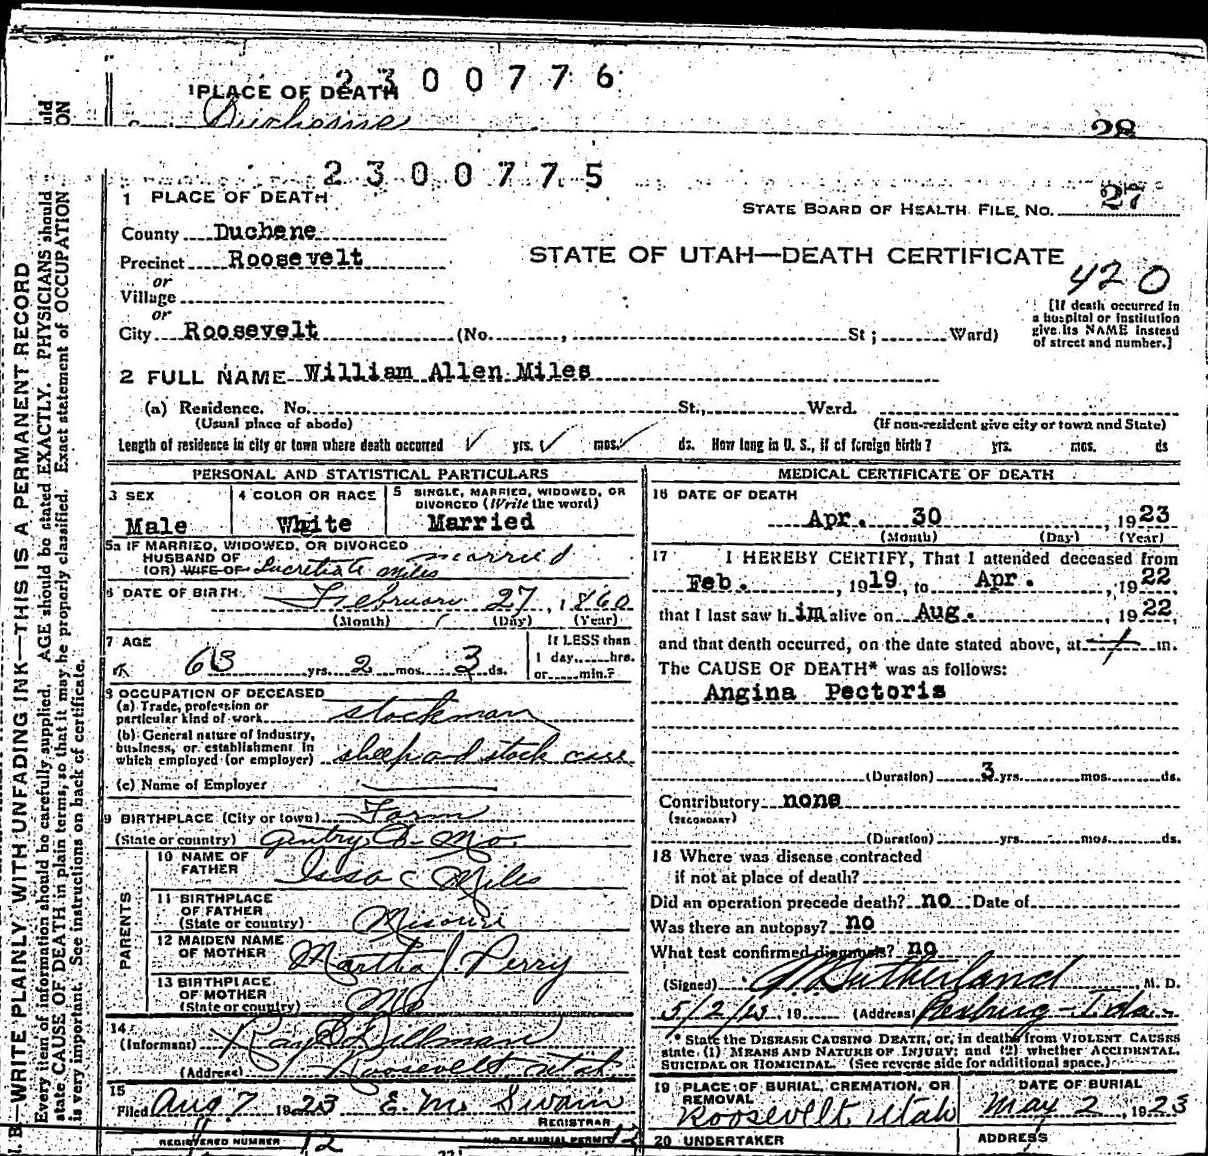 2300776
1 PLACE OF DEATH
Duchesne
28
2300775
1 PLACE OF DEATH
STATE BOARD OF HEALTH FILE NO. 27
County Duchene
STATE OF UTAH—DEATH CERTIFICATE
Precinct Roosevelt
420
or
Village
or
City Roosevelt (No. , St; Ward)
[If death occurred in
a hospital or institution
give its NAME instead
of street and number.]
2 FULL NAME William Allen Miles
(a) Residence. No. St., Ward.
(Usual place of abode) (If non-resident give city or town and State)
Length of residence in city or town where death occurred ✓ yrs. ✓ mos. ✓ ds. How long in U. S., if of foreign birth? yrs. mos. ds
PERSONAL AND STATISTICAL PARTICULARS
3 SEX
Male
4 COLOR OR RACE
White
5 SINGLE, MARRIED, WIDOWED, OR
DIVORCED (Write the word)
Married
5a IF MARRIED, WIDOWED, OR DIVORCED
HUSBAND OF married
(OR) WIFE OF Miles
6 DATE OF BIRTH February 27, 1860
(Month) (Day) (Year)
7 AGE
63 yrs. 2 mos. 3 ds.
If LESS than
1 day, hrs.
or min.?
8 OCCUPATION OF DECEASED
(a) Trade, profession or
particular kind of work stockman
(b) General nature of industry,
business, or establishment in
which employed (or employer) sheep and stock
(c) Name of Employer
9 BIRTHPLACE (City or town) Farm
(State or country) Gentry Co. Mo.
PARENTS
10 NAME OF
FATHER C Miles
11 BIRTHPLACE
OF FATHER
(State or country) Missouri
12 MAIDEN NAME
OF MOTHER Martha J. Perry
13 BIRTHPLACE
OF MOTHER
(State or country) Mo
14
(Informant) Ray E Dillman
(Address) Roosevelt Utah
15
Filed Aug 7 1923 E. M. Swain
REGISTRAR
REGISTERED NUMBER 12 NO. OF BURIAL PERMIT 12
MEDICAL CERTIFICATE OF DEATH
16 DATE OF DEATH
Apr. 30, 1923
(Month) (Day) (Year)
17 I HEREBY CERTIFY, That I attended deceased from
Feb., 1919, to Apr., 1922
that I last saw him alive on Aug., 1922,
and that death occurred, on the date stated above, at m.
The CAUSE OF DEATH* was as follows:
Angina Pectoris
(Duration) 3 yrs. mos. ds.
Contributory none
(SECONDARY)
(Duration) yrs. mos. ds.
18 Where was disease contracted
if not at place of death?
Did an operation precede death? no Date of
Was there an autopsy? no
What test confirmed diagnosis? no
(Signed) Sutherland M. D.
5/2/23 19 (Address) Rexburg - Ida -
* State the DISEASE CAUSING DEATH, or, in deaths from VIOLENT CAUSES
state (1) MEANS AND NATURE OF INJURY; and (2) whether ACCIDENTAL,
SUICIDAL OR HOMICIDAL. (See reverse side for additional space.)
19 PLACE OF BURIAL, CREMATION, OR
REMOVAL
Roosevelt, Utah
DATE OF BURIAL
May 2, 1923
20 UNDERTAKER
ADDRESS
N. B.—WRITE PLAINLY WITH UNFADING INK—THIS IS A PERMANENT RECORD
Every item of information should be carefully supplied. AGE should be stated EXACTLY. PHYSICIANS should
state CAUSE OF DEATH in plain terms, so that it may be properly classified. Exact statement of OCCUPATION
is very important. See instructions on back of certificate.